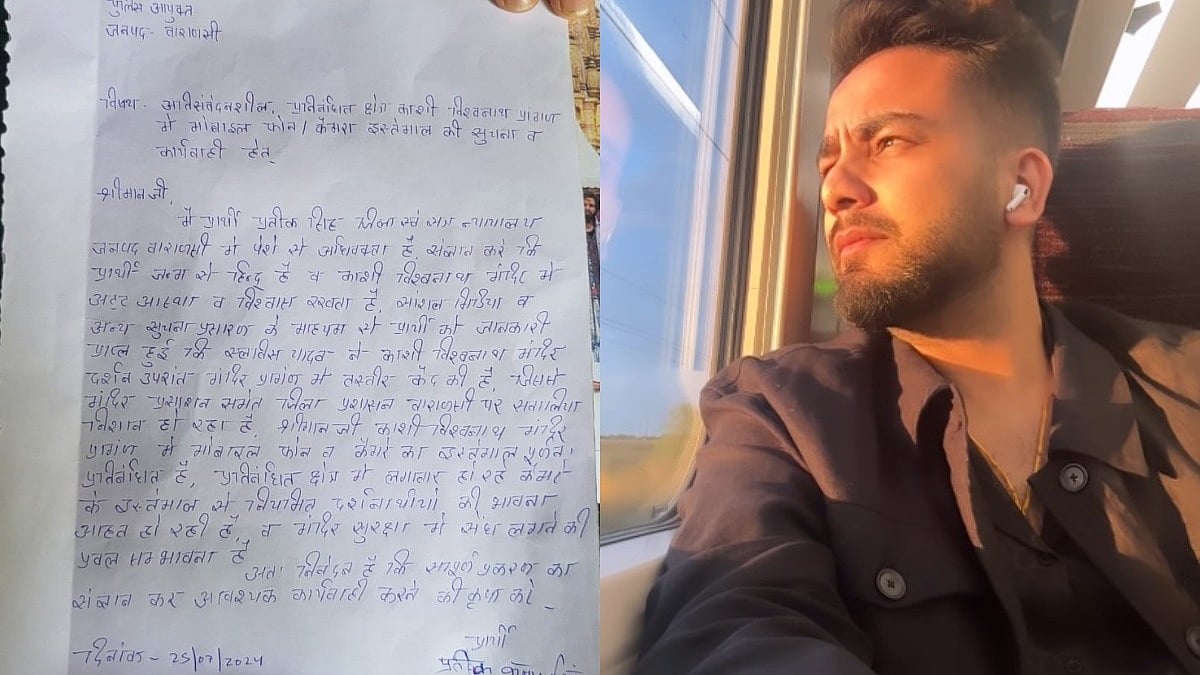 पुलिस आयुक्त
जनपद- वाराणसी
विषय- अतिसंवेदनशील, प्रतिबंधित क्षेत्र काशी विश्वनाथ प्रांगण
मे मोबाइल फोन/कैमरा इस्तेमाल की सुचना व
कार्यवाही हेतु
श्रीमान जी,
मै प्रार्थी प्रतीक सिंह जिला एवं सत्र न्यायालय
जनपद वाराणसी मे पेशे से अधिवक्ता है, संज्ञान करे कि
प्रार्थी जन्म से हिन्दू है व काशी विश्वनाथ मंदिर मे
अटूट आस्था व विश्वास रखता है, सोशल मिडिया व
अन्य सुचना प्रसारण के माध्यम से प्रार्थी को जानकारी
प्राप्त हुई कि यादव ने काशी विश्वनाथ मंदिर
दर्शन उपरांत मंदिर प्रागंण मे तस्वीर कैद की है, जिससे
मंदिर प्रशासन समेत जिला प्रशासन वाराणसी पर सवालिया
निशान हो रहा है, श्रीमान जी काशी विश्वनाथ मंदिर
प्रागंण मे मोबाइल फोन व कैमरे का इस्तेमाल पूर्णतः
प्रतिबंधित है, प्रतिबंधित क्षेत्र मे लगातार हो रहे कैमरे
के इस्तेमाल से नियमित दर्शनार्थीयो की भावना
आहत हो रही है, व मंदिर सुरक्षा मे सेंध लगने की
प्रबल सम्भावना है
अतः निवेदन है कि सम्पूर्ण प्रकरण का
संज्ञान कर आवश्यक कार्यवाही करने की कृपा करे -
दिनांक - 25/07/2024
प्रार्थी
प्रतीक